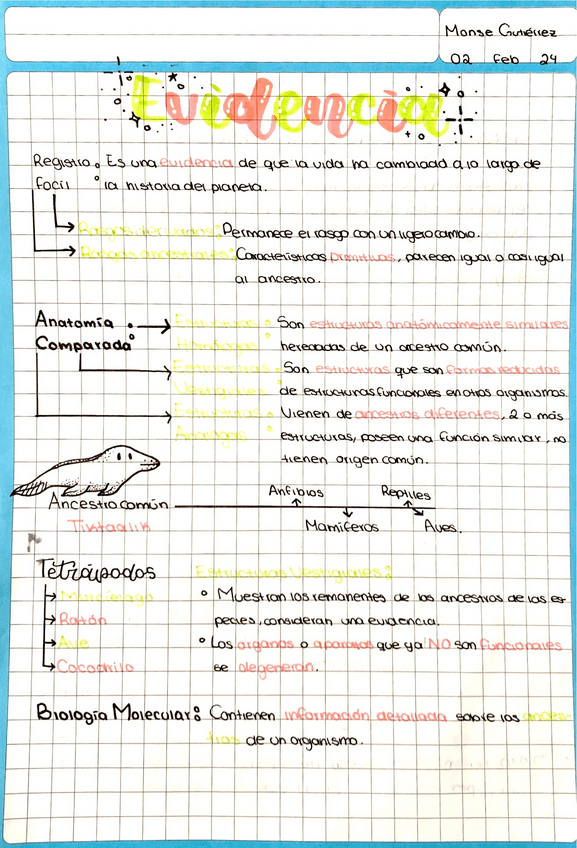 Monse Gutiérrez
02 Feb 24
Evidencia
Registro Es una evidencia de que la vida ha cambiado a lo largo de
Focil : la historia del planeta.
Rasgos derivados: Permanece el rasgo con un ligero cambio.
Rasgos ancestrales: Características primitivas, parecen igual o casi igual
al ancestro.
Anatomía Estructuras Son estructuras anatómicamente similares
Comparada: Homólogas: heredadas de un ancestro común.
Estructuras Son estructuras que son formas reducidas
Vestigiales: de estructuras funcionales en otros organismos.
Estructuras Vienen de ancestros diferentes, 2 o más
Análogas: estructuras, poseen una función similar, no
tienen origen común.
Anfibios Reptiles
Ancestro común
Tiktaalik Mamíferos Aves.
Tetrápodos Estructuras Vestigiales:
Murciélago ° Muestran los remanentes de los ancestros de las es
Ratón pecies, consideran una evidencia.
Ave ° Los organos o aparatos que ya NO son funcionales
Cocodrilo se degeneran.
Biología Molecular: Contienen información detallada sobre los ances-
tros de un organismo.